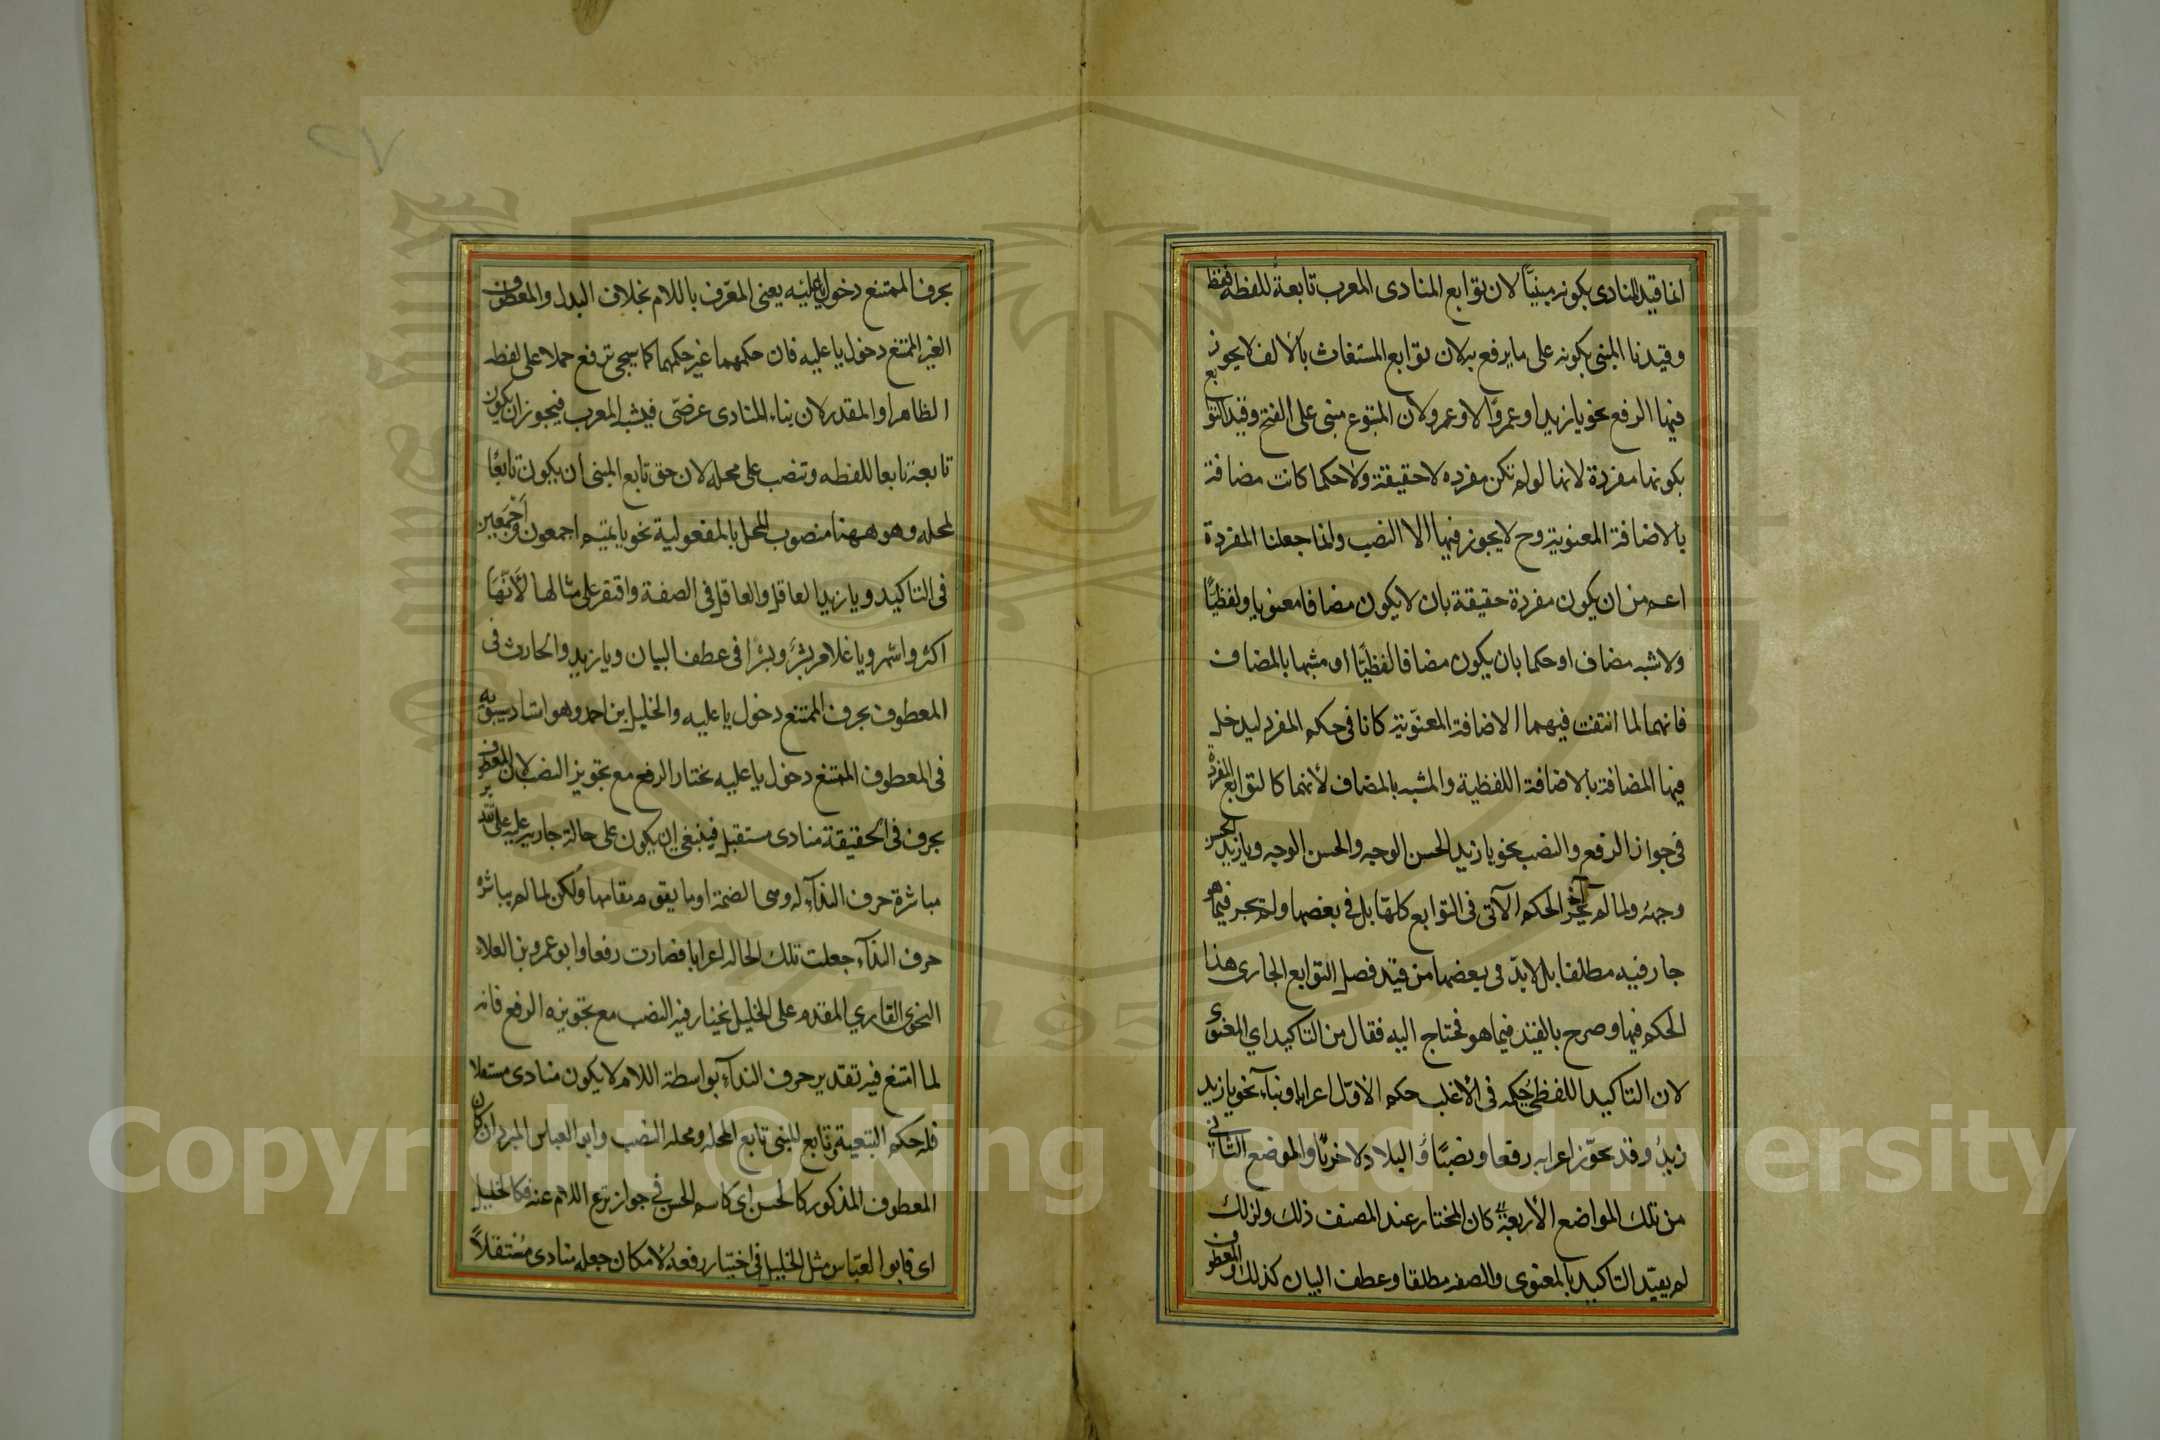 انما قيد المنادى بكونه مبنيًّا لان توابع المنادى المعرب تابعة للفظه فقط
وقيدنا المبنى بكونه على ما يرفع به لان توابع المستغاث بالالف لا يجوز
فيها الرفع نحو يا زيدا وعمروًا لا وعمرو لان المتبوع مبنى على الفتح وقيد التوابع
بكونها مفردة لانها لو لم تكن مفرده لا حقيقة ولا حكما كانت مضافة
بالاضافة المعنوية وح لا يجوز فيها الا النصب وانما جعلنا المفردة
اعم من ان يكون مفردة حقيقة بان لا يكون مضافا معنويا ولفظيًّا
ولا شبه مضاف او حكما بان يكون مضافا لفظيًّا او مشبها بالمضاف
فانهما لما انتفت فيهما الاضافة المعنوية كانا فى حكم المفرد ليدخل
فيها المضافة بالاضافة اللفظية والمشبه بالمضاف لأنهما كالتوابع المفردة
فى جواز الرفع والنصب نحو يا زيد الحسن الوجه والحسن الوجه ويا زيد الحسن
وجهه ولما لم يجر الحكم الآتى فى التوابع كلها بل فى بعضها ولم يجر فيما هو
جار فيه مطلقا بل لا بدّ فى بعضها من قيد فصل التوابع الجارى هذا
الحكم فيها وصرح بالقيد فيما هو محتاج اليه فقال من التاكيد اي المعنوى
لان التاكيد اللفظى حكمه فى الأغلب حكم الاوّل اعرابا وبناء نحو يا زيد
زيدُ وقد يجوّز اعرابه رفعا ونصبًا وُ البلاد لاخر والموضع الثانى
من تلك المواضع الأربعة كان المختار عند المصنف ذلك ولذلك
لم يقيد التاكيد بالمعنوى والصفه مطلقا وعطف البيان كذلك والمعطوف
٢٧
بحرف الممتنع دخول يا عليه يعنى المعرّف باللام بخلاف البدل والمعطوف
الغير الممتنع دخول يا عليه فان حكمهما غير حكمها كما سيجى ترفع حملا على لفظه
الظاهر او المقدر لان بناء المنادى عرضى فيشبه المعرب فيجوز ان يكون
تابعة تابعا للفظه وتنصب على محله لان حق تابع المبنى ان يكون تابعًا
لمحله وهو ههنا منصوب المحل بالمفعولية نحو يا تيم اجمعون وأجمعين
فى التاكيد ويا زيد العاقل والعاقل فى الصفة واقتصر على مثالها لأنّها
اكثر واشهر ويا غلام بشر وبشرا فى عطف البيان ويا زيد والحارث فى
المعطوف بحرف الممتنع دخول يا عليه والخليل بن احمد وهو استاد سيبويه
فى المعطوف الممتنع دخول يا عليه يختار الرفع مع تجويز النصب لان المعطوف
بحرف فى الحقيقة منادى مستقبل فينبغى ان يكون على حالة جارية عليه على تقدير
مباشرة حرف الندآء له وهى الضمة او ما يقوم مقامها ولكن لما لم يباشره
حرف الندآء جعلت تلك الحاله اعرابا فصارت رفعا وابو عمرو بن العلاء
النحوى القاري المقدم على الخليل يختار فيه النصب مع تجويزه الرفع فانه
لما امتنع فيه تقدير حرف الندآء بواسطة اللام لا يكون منادى مستقلا
فله حكم التبعية وتابع المبنى تابع لمحله ومحله النصب وابو العباس المبرد ان كان
المعطوف المذكور كالحسن اى كاسم الحسن فى جواز نزع اللام عنه فكالخليل
اى فابو العبّاس مثل الخليل فى اختيار رفعه لامكان جعله منادى مستقلاً
Copyright © King Saud University